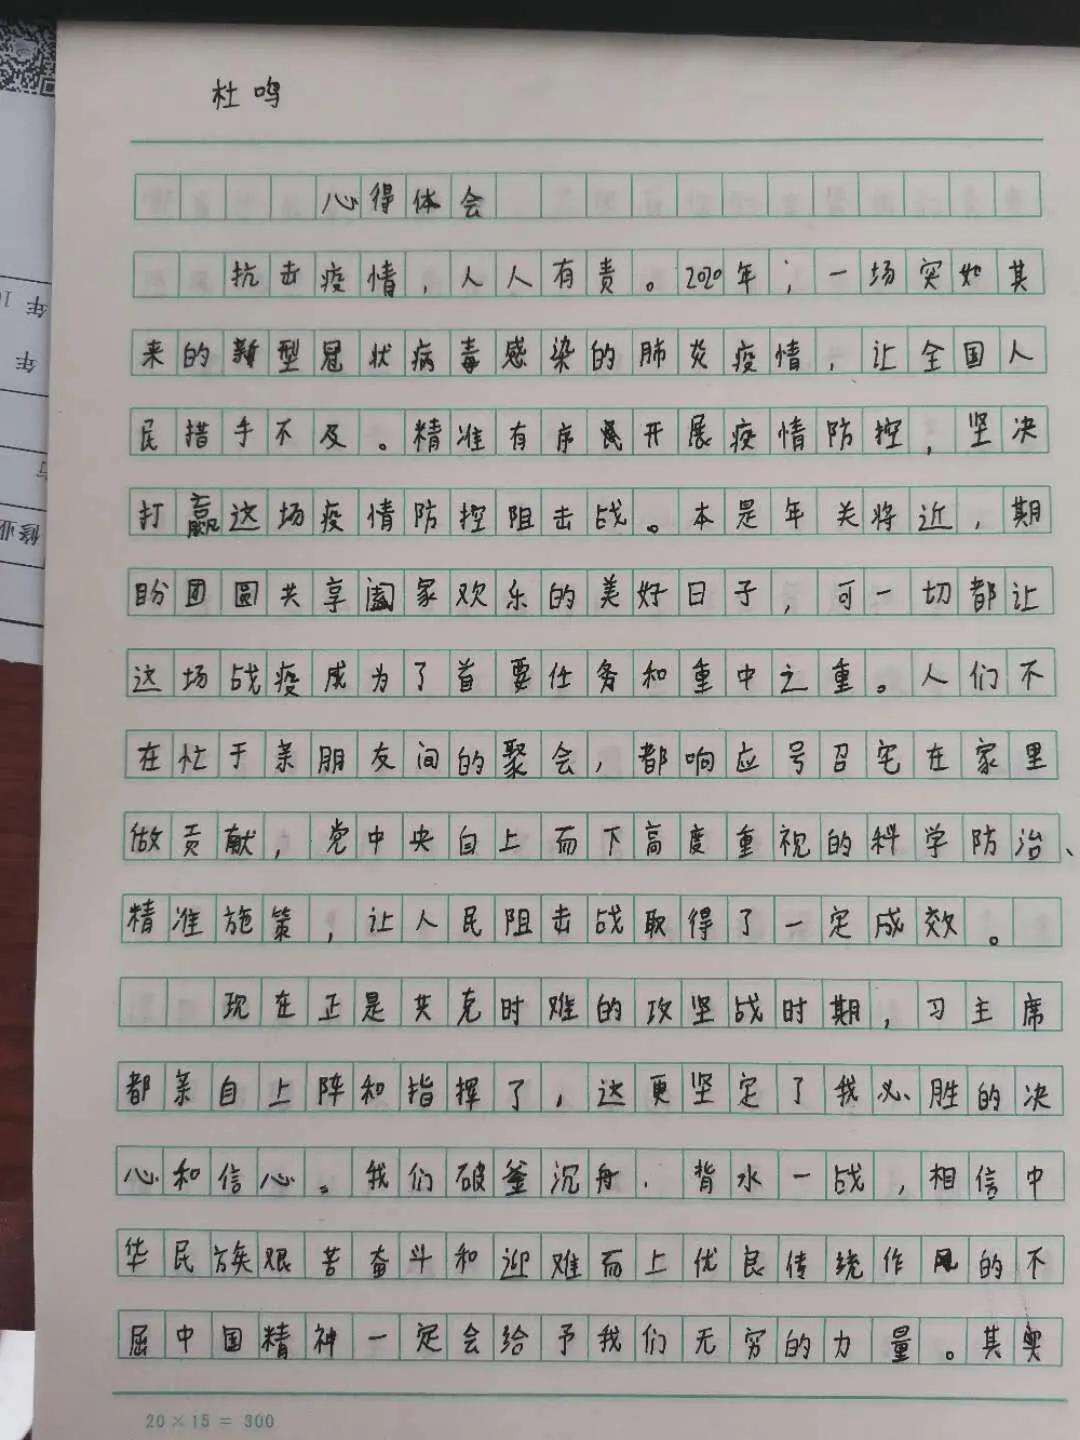 杜鸣
心得体会
抗击疫情，人人有责。2020年，一场突如其
来的新型冠状病毒感染的肺炎疫情，让全国人
民措手不及。精准有序开展疫情防控，坚决
打赢这场疫情防控阻击战。本是年关将近，期
盼团圆共享阖家欢乐的美好日子，可一切都让
这场战疫成为了首要任务和重中之重。人们不
在忙于亲朋友间的聚会，都响应号召宅在家里
做贡献，党中央自上而下高度重视的科学防治、
精准施策，让人民阻击战取得了一定成效。
现在正是共克时难的攻坚战时期，习主席
都亲自上阵和指挥了，这更坚定了我必胜的决
心和信心。我们破釜沉舟．背水一战，相信中
华民族艰苦奋斗和迎难而上优良传统作风的不
屈中国精神一定会给予我们无穷的力量。其实
20×15=300
年
年
修业